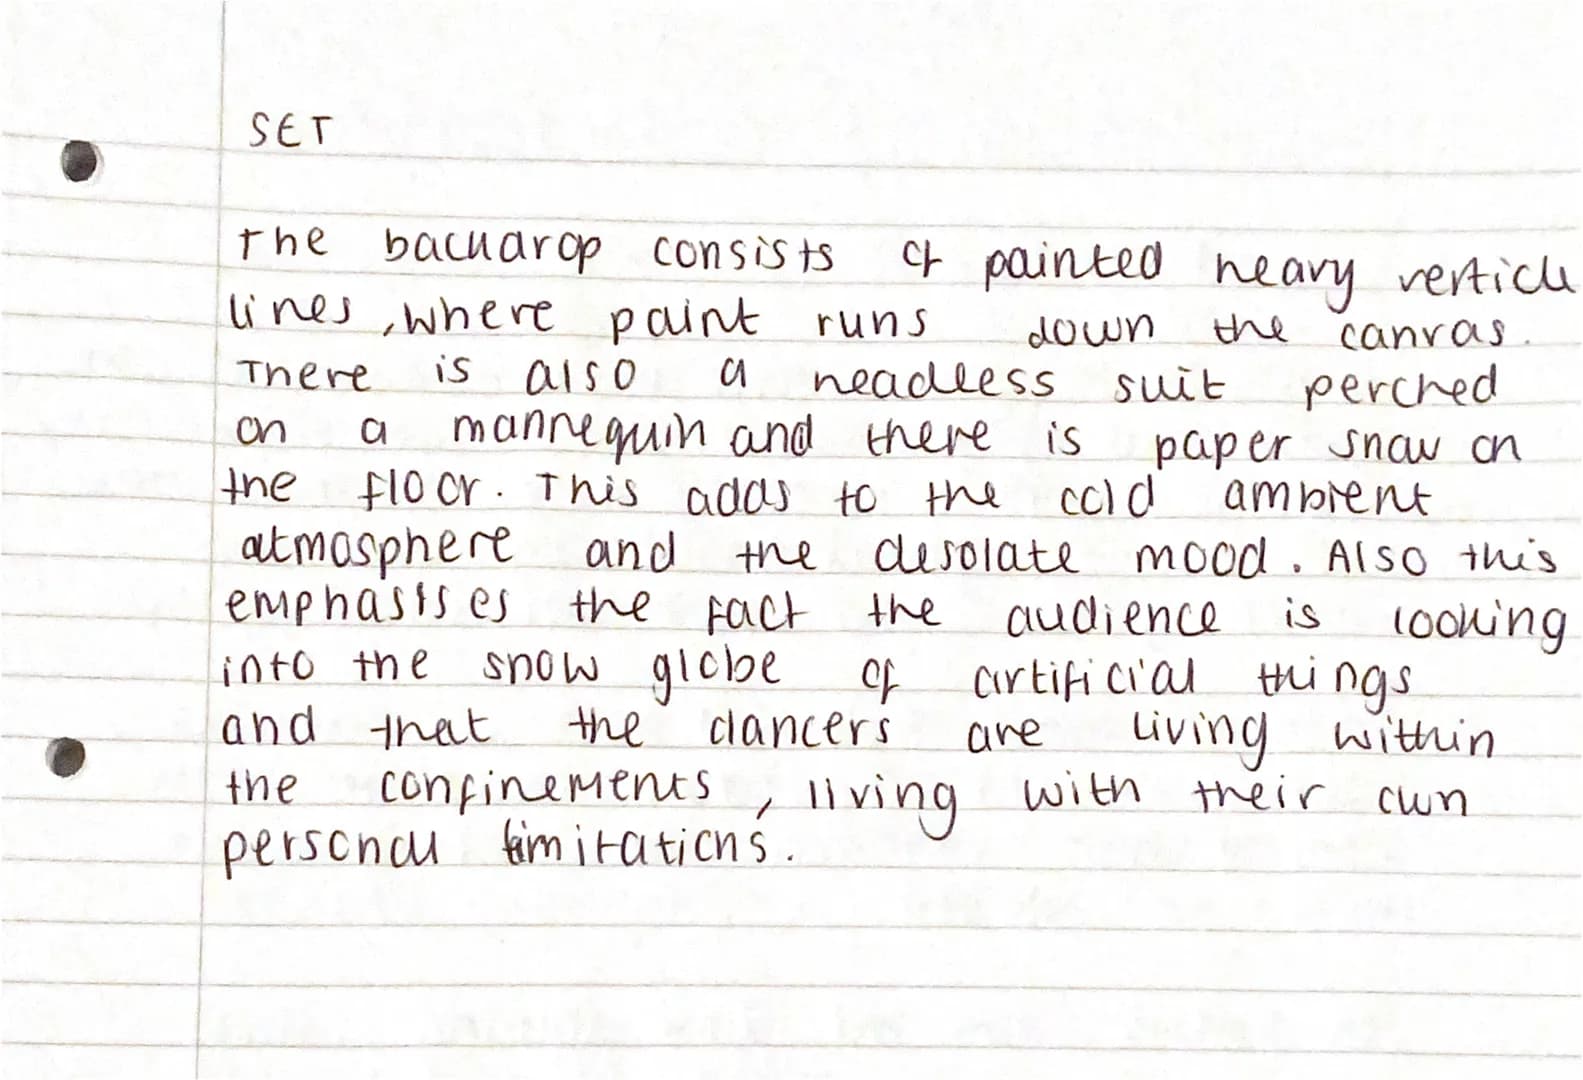 SET
The backdrop consists of painted heavy verticle
lines, where paint runs down the canvas.
There is also a headless suit perched
on a mannequin and there is paper snow on
the floor. This adds to the cold ambient
atmosphere and the desolate mood. Also this
emphasises the fact the audience is looking
into the snow globe of artificial things
and that the dancers are living within
the confinements, living with their own
personal limitations.